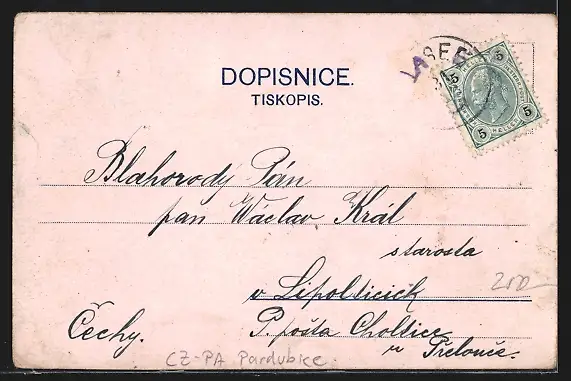 DOPISNICE.
TISKOPIS.
LABE
5 5
5 HELLER 5
Blahorodý Pán
pan Václav Král
starosta
v Lipolticích
Čechy. P. pošta Choltice
u Přelouče.
200—
CZ-PA Pardubice